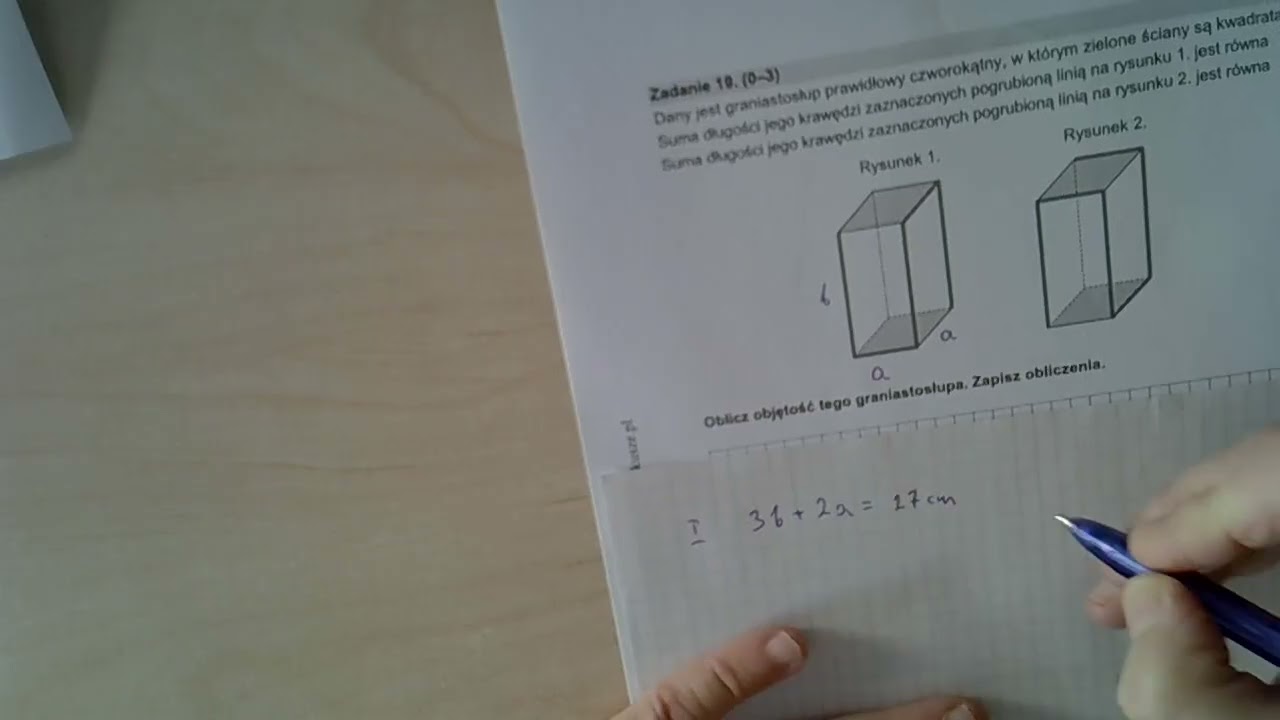 Zadanie 19. (0–3)
Dany jest graniastosłup prawidłowy czworokątny, w którym zielone ściany są
Suma długości jego krawędzi zaznaczonych pogrubioną linią na rysunku 1. jest równa
Suma długości jego krawędzi zaznaczonych pogrubioną linią na rysunku 2. jest równa
Rysunek 1.
Rysunek 2.
b
a
a
Oblicz objętość tego graniastosłupa. Zapisz obliczenia.
I 3b + 2a = 27 cm